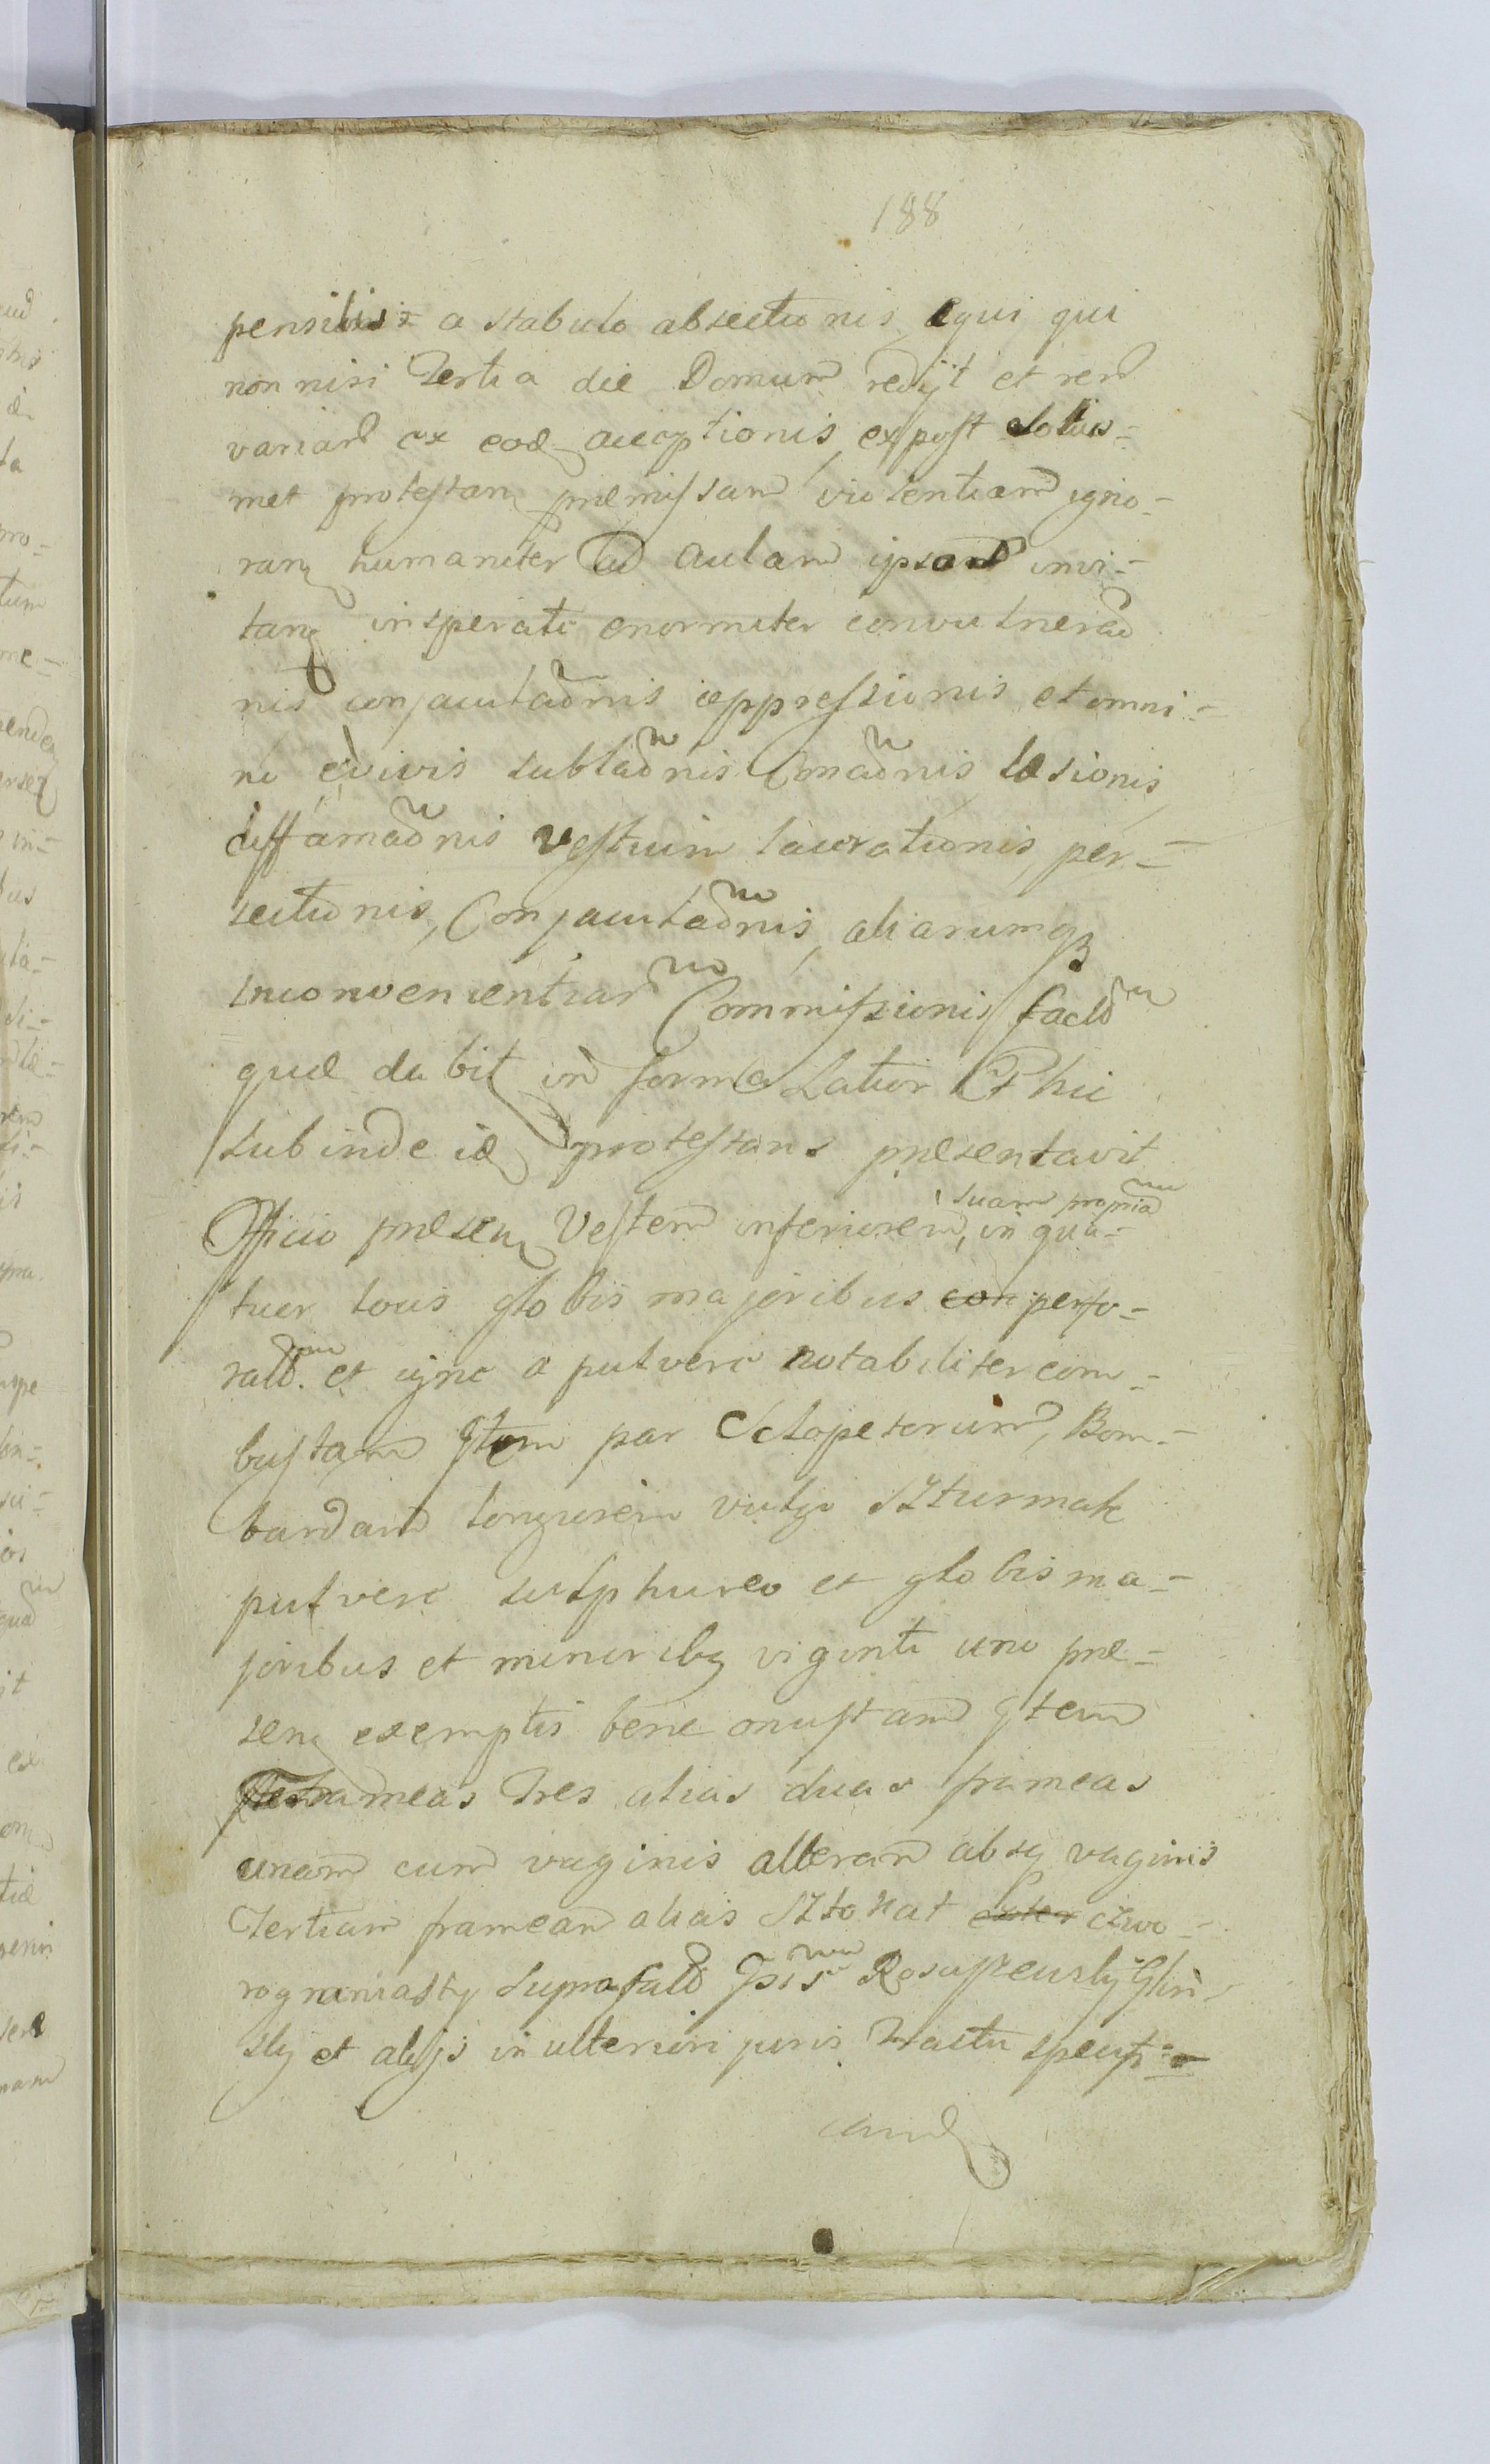 188
pensilis a stabulo absectionis, equi qui
non nisi Tertia die Domum redijt et rerum
variarum ex eod acceptionis, expost
met protestan præmissam violentiam igno-
ran humaniter ad aulam ipsam invi-
tan insperate enormiter convulnerao
nis conjaculaonis oppressionis et omni-
no e vivis sublaonis Cmaonis læsionis,
diffamaonis vestium lacerationis, per-
sectionis, Conjaculaonis, aliarumq
inconvenientiarum Commissionis factam
quæ dabit in forma Lator Phii
subinde id protestans præsentavit
Officio præsen Vestem inferiorem, suam propriam in qua-
tuor locis globis majoribus con perfo-
ratam et igne a pulvere notabiliter com-
bustam Item par Sclopetorum, Bom-
bardam longiorem vulgo Szturmak
pulvere sulphureo et globis ma-
joribus et minoribq viginti uno præ-
sen exemptis bene onustam Item
frameas Tres alias duas frameas
unam cum vaginis alteram absq vaginis
Tertiam frameam aliàs Sztokat czwo-
rograniasty suprafato
sky et alijs in ulteriori juris tractu
cand